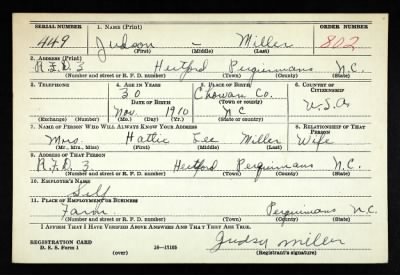 SERIAL NUMBER 1. NAME (Print) ORDER NUMBER
449 Judson - Miller 802
(First) (Middle) (Last)
2. ADDRESS (Print)
R.F.D. 3 Hertford Perquimans N.C.
(Number and street or R. F. D. number) (Town) (County) (State)
3. TELEPHONE 4. AGE IN YEARS 5. PLACE OF BIRTH 6. COUNTRY OF CITIZENSHIP
30 Chowan Co.
DATE OF BIRTH (Town or county)
Nov. 1910 N C U.S.A.
(Exchange) (No.) (Mo.) (Day) (Yr.) (State or country)
7. NAME OF PERSON WHO WILL ALWAYS KNOW YOUR ADDRESS 8. RELATIONSHIP OF THAT PERSON
Mrs. Hattie Lee Miller Wife
(Mr., Mrs., Miss) (First) (Middle) (Last)
9. ADDRESS OF THAT PERSON
R.F.D. 3 Hertford Perquimans N.C.
(Number and street or R. F. D. number) (Town) (County) (State)
10. EMPLOYER'S NAME
Self
11. PLACE OF EMPLOYMENT OR BUSINESS
Farm Perquimans N.C.
(Number and street or R. F. D. number) (Town) (County) (State)
I AFFIRM THAT I HAVE VERIFIED ABOVE ANSWERS AND THAT THEY ARE TRUE.
REGISTRATION CARD
D. S. S. Form 1 16-17105 Judsy Miller
(over) (Registrant's signature)